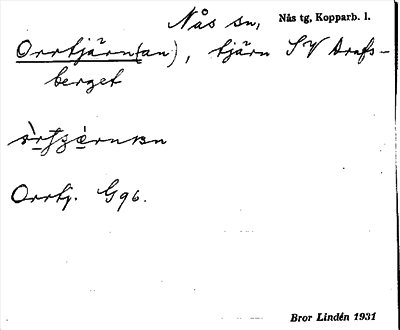 Nås sn, Nås tg, Kopparb. l.
Orrtjärn(an), tjärn SV Drafs-
berget
Orrtj. G96.
Bror Lindén 1931